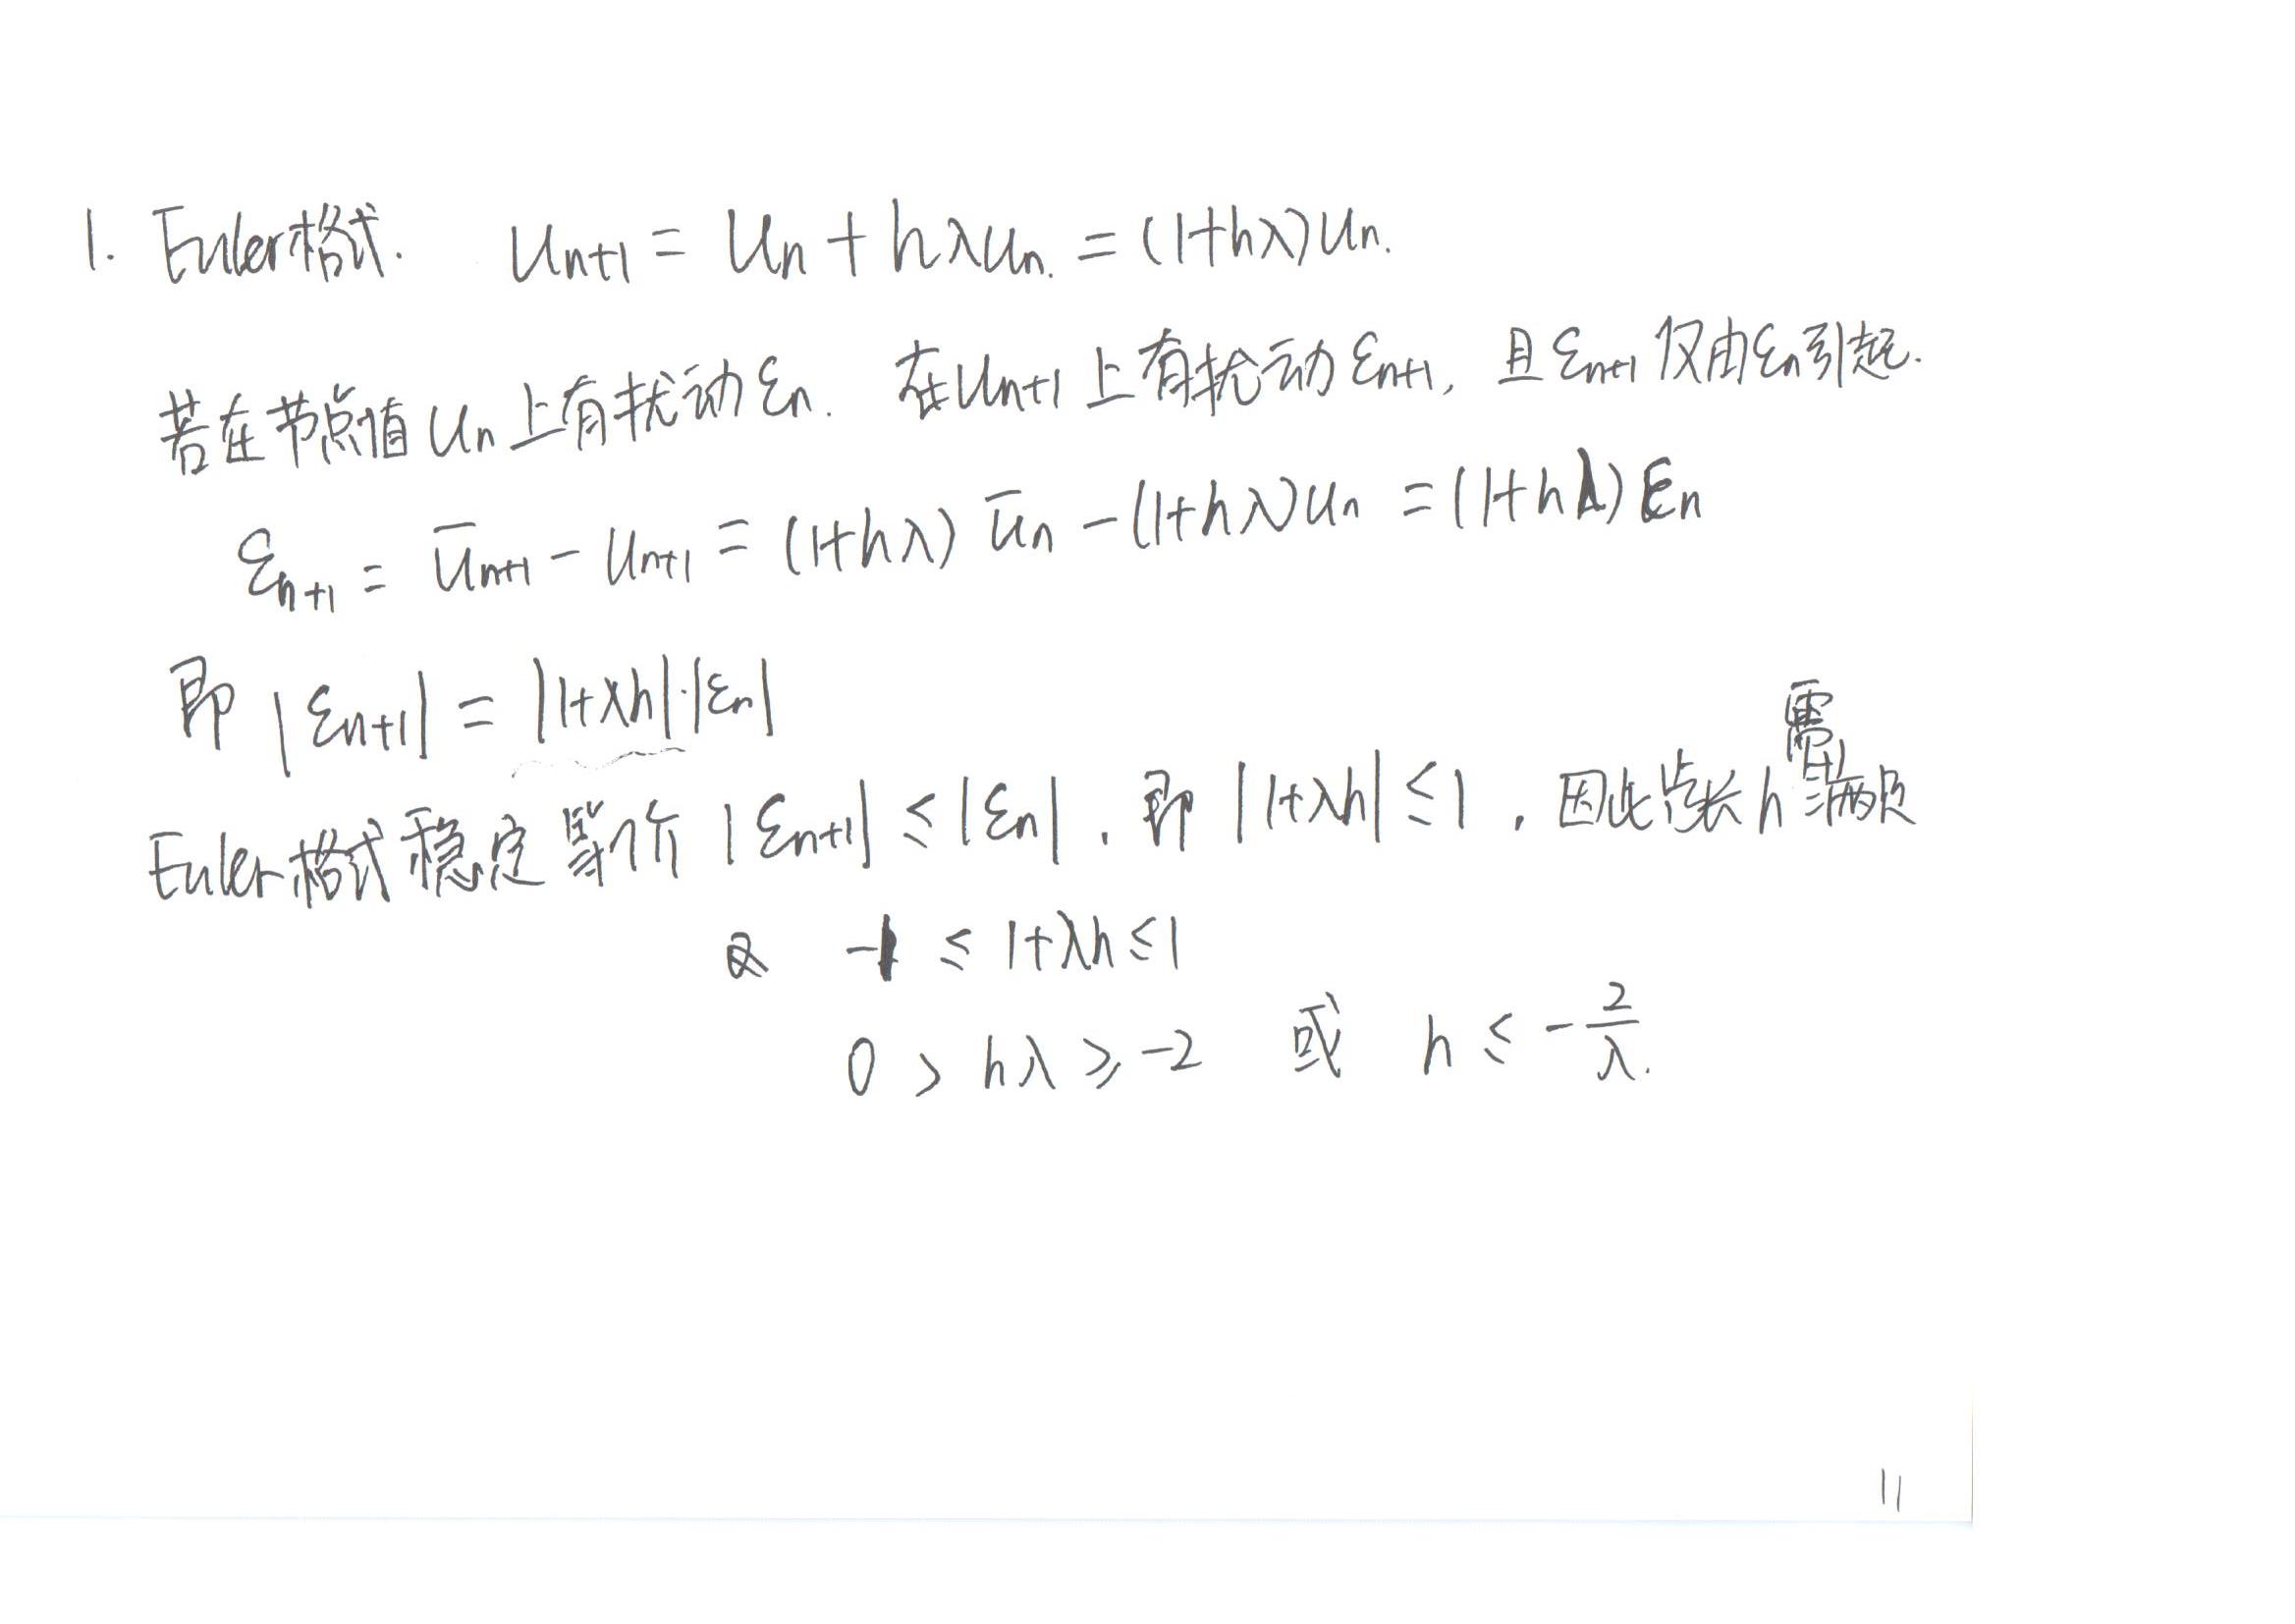 1. Euler格式. Un+1 = Un + hλUn. = (1+hλ)Un.
若在节点值Un上有扰动εn. 在Un+1上有扰动εn+1, 且εn+1仅由εn引起.
εn+1 = Ūn+1 - Un+1 = (1+hλ)Ūn - (1+hλ)Un = (1+hλ)εn
即 |εn+1| = |1+λh|·|εn|
Euler格式稳定等价 |εn+1| ≤ |εn|. 即 |1+λh| ≤ 1, 因此步长h需满足
-1 ≤ 1+λh ≤ 1
0 > hλ ≥ -2 或 h ≤ -2/λ.
11